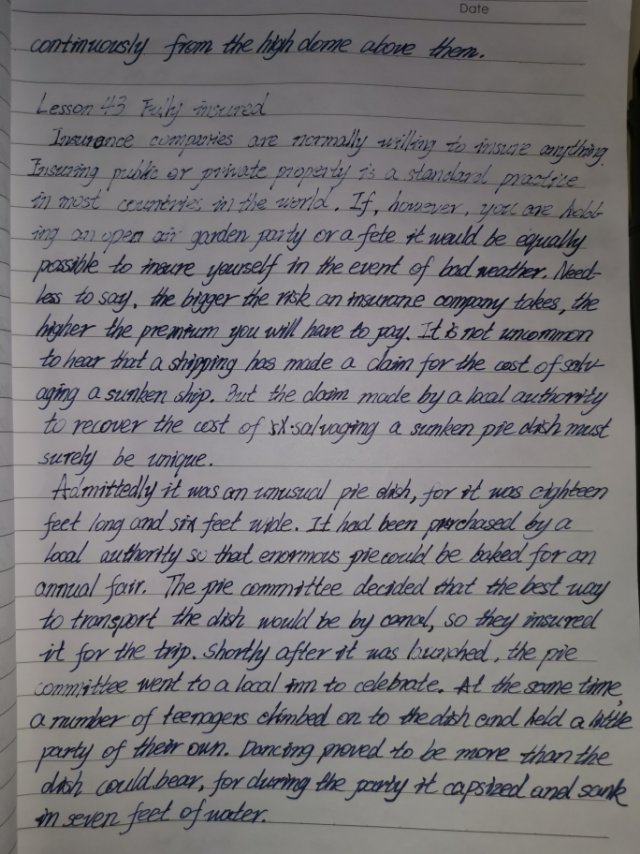 Date
continuously from the high dome above them.
Lesson 43 Fully insured
Insurance companies are normally willing to insure anything.
Insuring public or private property is a standard practice
in most countries in the world. If, however, you are hold-
ing an open air garden party or a fete it would be equally
possible to insure yourself in the event of bad weather. Need-
less to say, the bigger the risk an insurane company takes, the
higher the premium you will have to pay. It is not uncommon
to hear that a shipping has made a claim for the cost of salv-
aging a sunken ship. But the claim made by a local authority
to recover the cost of salvaging a sunken pie dish must
surely be unique.
Admittedly it was an unusual pie dish, for it was eighteen
feet long and six feet wide. It had been purchased by a
local authority so that enormous pie could be baked for an
annual fair. The pie committee decided that the best way
to transport the dish would be by canal, so they insured
it for the trip. Shortly after it was launched, the pie
committee went to a local inn to celebrate. At the same time,
a number of teenagers climbed on to the dish and held a little
party of their own. Dancing proved to be more than the
dish could bear, for during the party it capsized and sank
in seven feet of water.